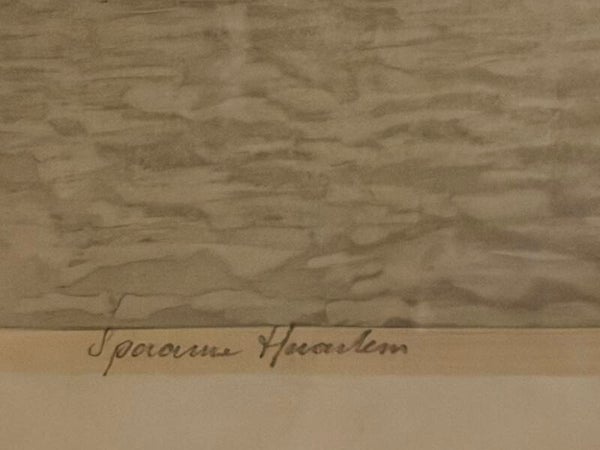 Spaarne Haarlem